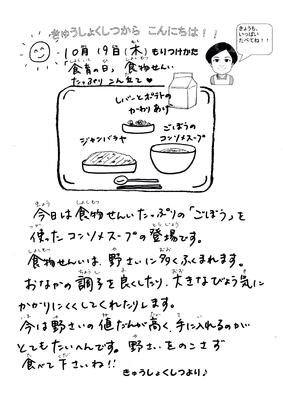 きゅうしょくしつから こんにちは！！
きょうも、
いっぱい
たべてね！！
10月19日(木)もりつけかた
「食育の日」食物せんい
たっぷりこんだて
レバーとポテトの
かわりあげ
ごぼうの
コンソメスープ
ジャンバラヤ
今日は食物せんいたっぷりの「ごぼう」を
使ったコンソメスープの登場です。
食物せんいは、野さいに多くふくまれます。
おなかの調子を良くしたり、大きなびょう気に
かかりにくくしてくれたりします。
今は野さいの値だんが高く、手に入れるのが
とてもたいへんです。野さいをのこさず
食べて下さいね!!
きゅうしょくしつより♪